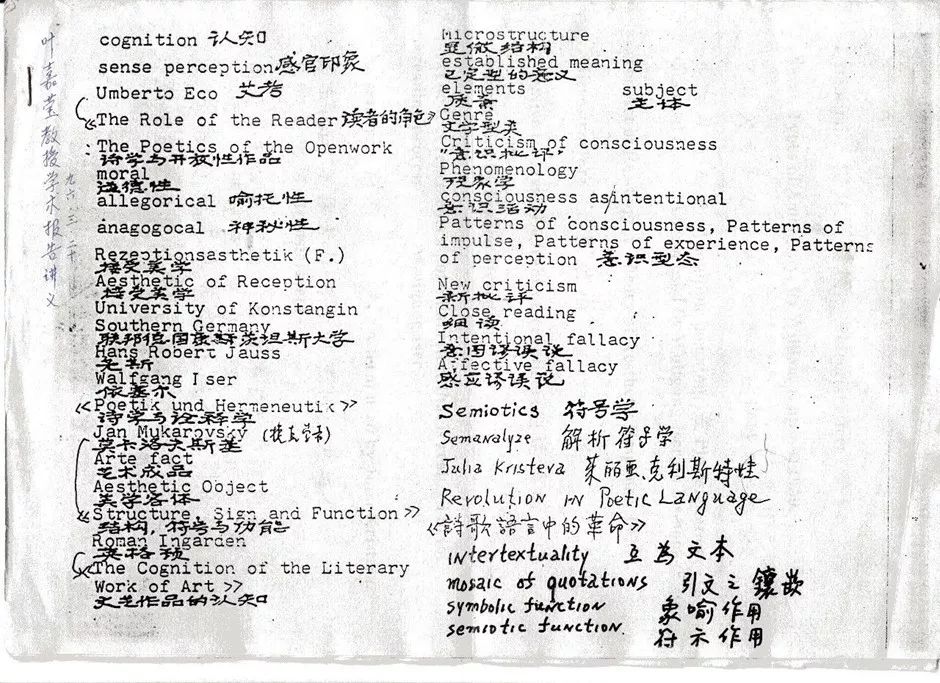 叶嘉莹教授学术报告讲义
九六.三.二十
cognition 认知
sense perception 感官印象
Umberto Eco 艾考
《The Role of the Reader 读者的角色》
The Poetics of the Openwork
诗学与开放性作品
moral
道德性
allegorical 喻托性
anagogocal 神秘性
Rezeptionsasthetik (F.)
接受美学
Aesthetic of Reception
接受美学
University of Konstangin
Southern Germany
联邦德国康斯茨坦斯大学
Hans Robert Jauss
尧斯
Walfgang Iser
依塞尔
《Poetik und Hermeneutik》
诗学与诠释学
Jan Mukarovsky (捷克学者)
莫卡洛夫斯基
Arte fact
艺术成品
Aesthetic Object
美学客体
《Structure, Sign and Function》
结构，符号与功能
Roman Ingarden
英格顿
《The Cognition of the Literary
Work of Art》
文艺作品的认知
Microstructure
显微结构
established meaning
已定型的意义
elements subject
质素 主体
Genre
文学型类
Criticism of consciousness
"意识批评"
Phenomenology
现象学
consciousness as intentional
意识活动
Patterns of consciousness, Patterns of
impulse, Patterns of experience, Patterns
of perception 意识型态
New criticism
新批评
Close reading
细读
Intentional fallacy
意图谬误说
Affective fallacy
感应谬误说
Semiotics 符号学
Semanalyze 解析符号学
Julia Kristeva 茱丽亚克利斯特娃
Revolution in Poetic Language
《詩歌語言中的革命》
intertextuality 互為文本
mosaic of quotations 引文之鑲嵌
symbolic function 象喻作用
semiotic function. 符示作用